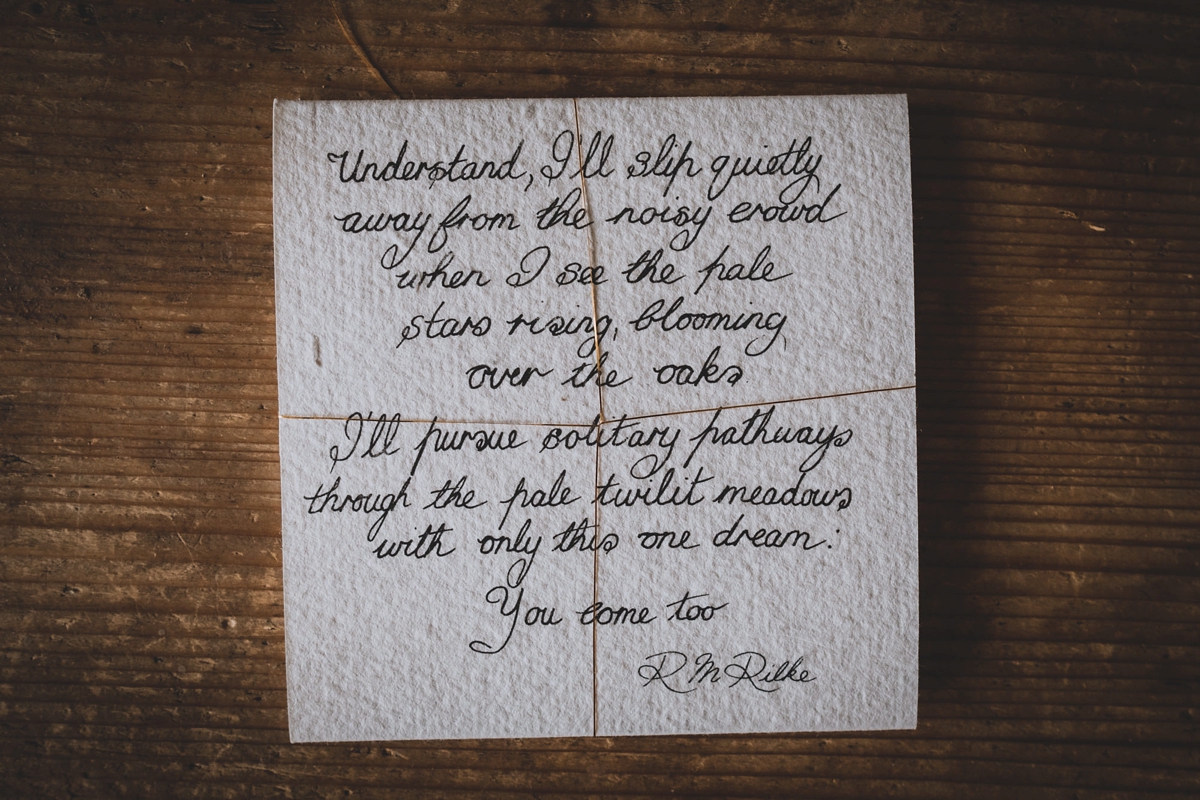 Understand, I'll slip quietly
away from the noisy crowd
when I see the pale
stars rising, blooming
over the oaks
I'll pursue solitary pathways
through the pale twilit meadows
with only this one dream:
You come too
R M Rilke